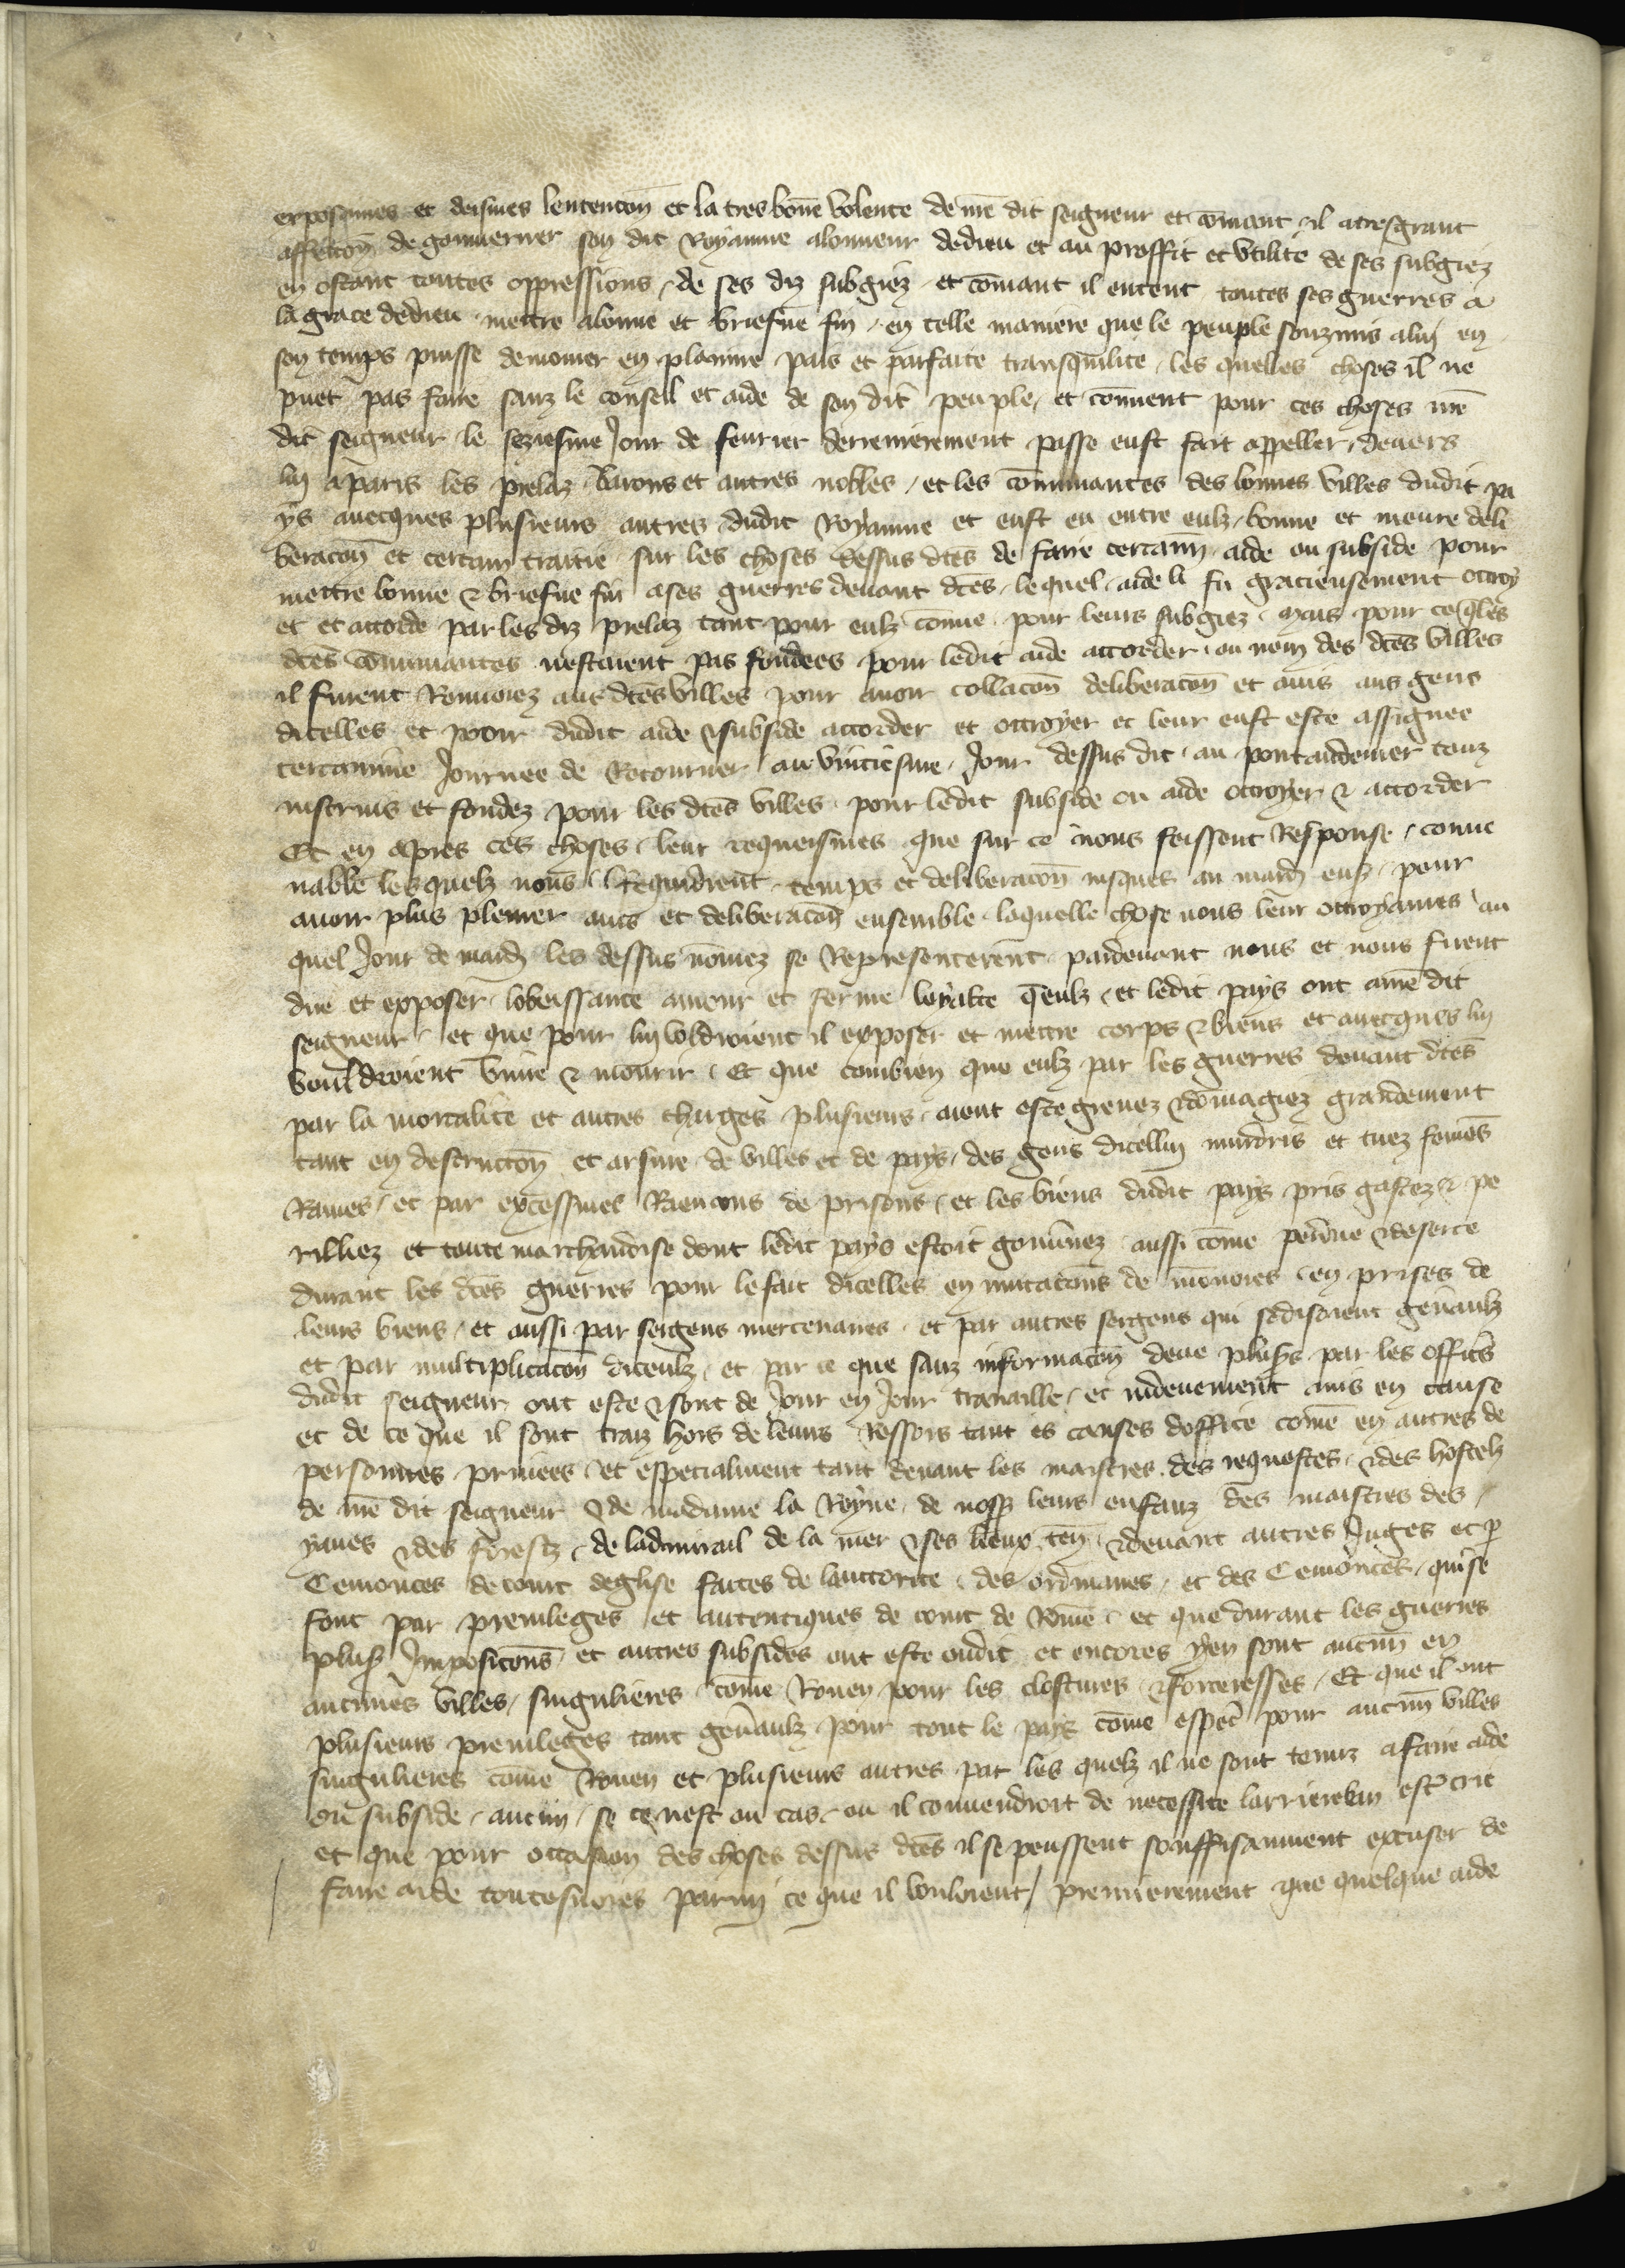 exposames et deismes lentencon̄ et la tres bon̄e volente de mē dit seigneur et cōmant il a tres grant
affection̄ de gouuerner son dit Royaume alonneur dedieu et au proffit et vtilite de ses subgiez
en ostant toutes oppressions de ses diz subgiez et cōmant il entent toutes ses guerres a
la grace dedieu mettre abonne et briefue fin en telle maniere que le peuple souzmis aluy en
son temps puisse demourer en planiere pais et parfaite transquilite les quelles choses il ne
puet pas faire sanz le conseil et aide de son dit peuple et cōment pour ces choses mē
dit seigneur le seziesme Jour de feurier derrenierement passe eust fait appeller deuers
luy aparis les prelaz barons et autres nobles et les cōmunautes des bonnes villes dudit pa
ys auecques plusieurs autres dudit Royaume et eust eu entre eulz bonne et meure deli
beracon̄ et certain traitie sur les choses dessus dc̄tes de faire certain aide ou subside pour
mettre bonne & briefue fin a ses guerres deuant dc̄tes lequel aide li fu gracieusement ottroy
et et accorde par les diz prelaz tant pour eulz cōme pour leurs subgiez mais pour ce q̄ les
dc̄tes cōmunautes nestoient pas fondees pour ledit aide accorder ou nom des dc̄tes villes
il furent Renuoiez aus dc̄tes villes pour auoir collacon̄ deliberacon̄ et auis aus gens
dicelles et pour dudit aide & subside accorder et ottroyer et leur eust este assignee
certainne Journee de Retourner au vintiesme Jour dessus dit au pontaudemer touz
instruis et fondez pour les dc̄tes villes pour ledit subside ou aide ottroyer & accorder
Et en apres ces choses leur requeismes que sur ce nous feissent Response conue
nable lesquelz nous Requidrent temps et deliberacon̄ iusques au mardy ens̄ pour
auoir plus plenier auis et deliberacon̄ ensemble laquelle chose nous leur ottroyames au
quel Jour de mardy les dessus nōmez se Representerent pardeuant nous et nous firent
dire et exposer lobeissance amour et ferme loyaute q̄ eulz et ledit pays ont amē dit
seigneur et que pour luy voldroient il exposer et mettre corps & biens et auecques luy
vouldroient viure & mourir Et que combien que eulz par les guerres deuant dc̄tes
par la mortalite et autres charges plusieurs aient este greuez & dōmagiez grandement
tant en destruccon̄ et arsure de villes et de pays des gens dicelluy murdris et tuez femes
Rauies et par excessiues Raencons de prisons et les biens dudit pays pris gastez & pe
rilliez et toute marchandise dont ledit pays estoit gouu̅nez aussi cōme perdue & deserte
durant les dc̄tes guerres pour le fait dicelles en mutacōns de monoies en prises de
leurs biens et aussi par sergens mercenaires et par autres sergens qui se disoient gen̄aulz
et par multiplicacon̄ diceulx et par ce que sanz informacon̄ deue plus̄s par les officrs
dudit seigneur ont este & sont de Jour en Jour trauaillie et indeuement mis en cause
et de ce que il sont traiz hors de leurs Ressors tant es causes doffice cōme en autres de
personnes priuees et especialment tant deuant les maistres des requestes & des hostelz
de mē dit seigneur & de madame la Royne de nosss̄ leurs enfanz des maistres des
yaues & des forestz de ladmirail de la mer & ses lieux ten̄ & deuant autres Juges et p̄
Cemonces de court deglise faites de lauctorite des ordinaires et des Cemonces qui se
font par preuileges et autentiques de court de Rōme et que durant les guerres
plus̄ Imposicōns et autres subsides ont este oudit et encores y en sont aucun̄ en
aucunes villes singulieres cōme Rouen pour les clostures & forteresses Et que il ont
plusieurs preuileges tant gen̄aulz pour tout le pays cōme espec̄ pour aucun̄ villes
singulieres cōme Rouen et plusieurs autres par les quelz il ne sont tenuz a faire aide
ou subside aucun se ce nest ou cas ou il conuendroit de necessite larriereban estre crie
et que pour occasion des choses dessus dc̄tes il se peussent souffisanment excuser de
faire aide toutesuoies parmy ce que il vouloient premierement que quelque aide